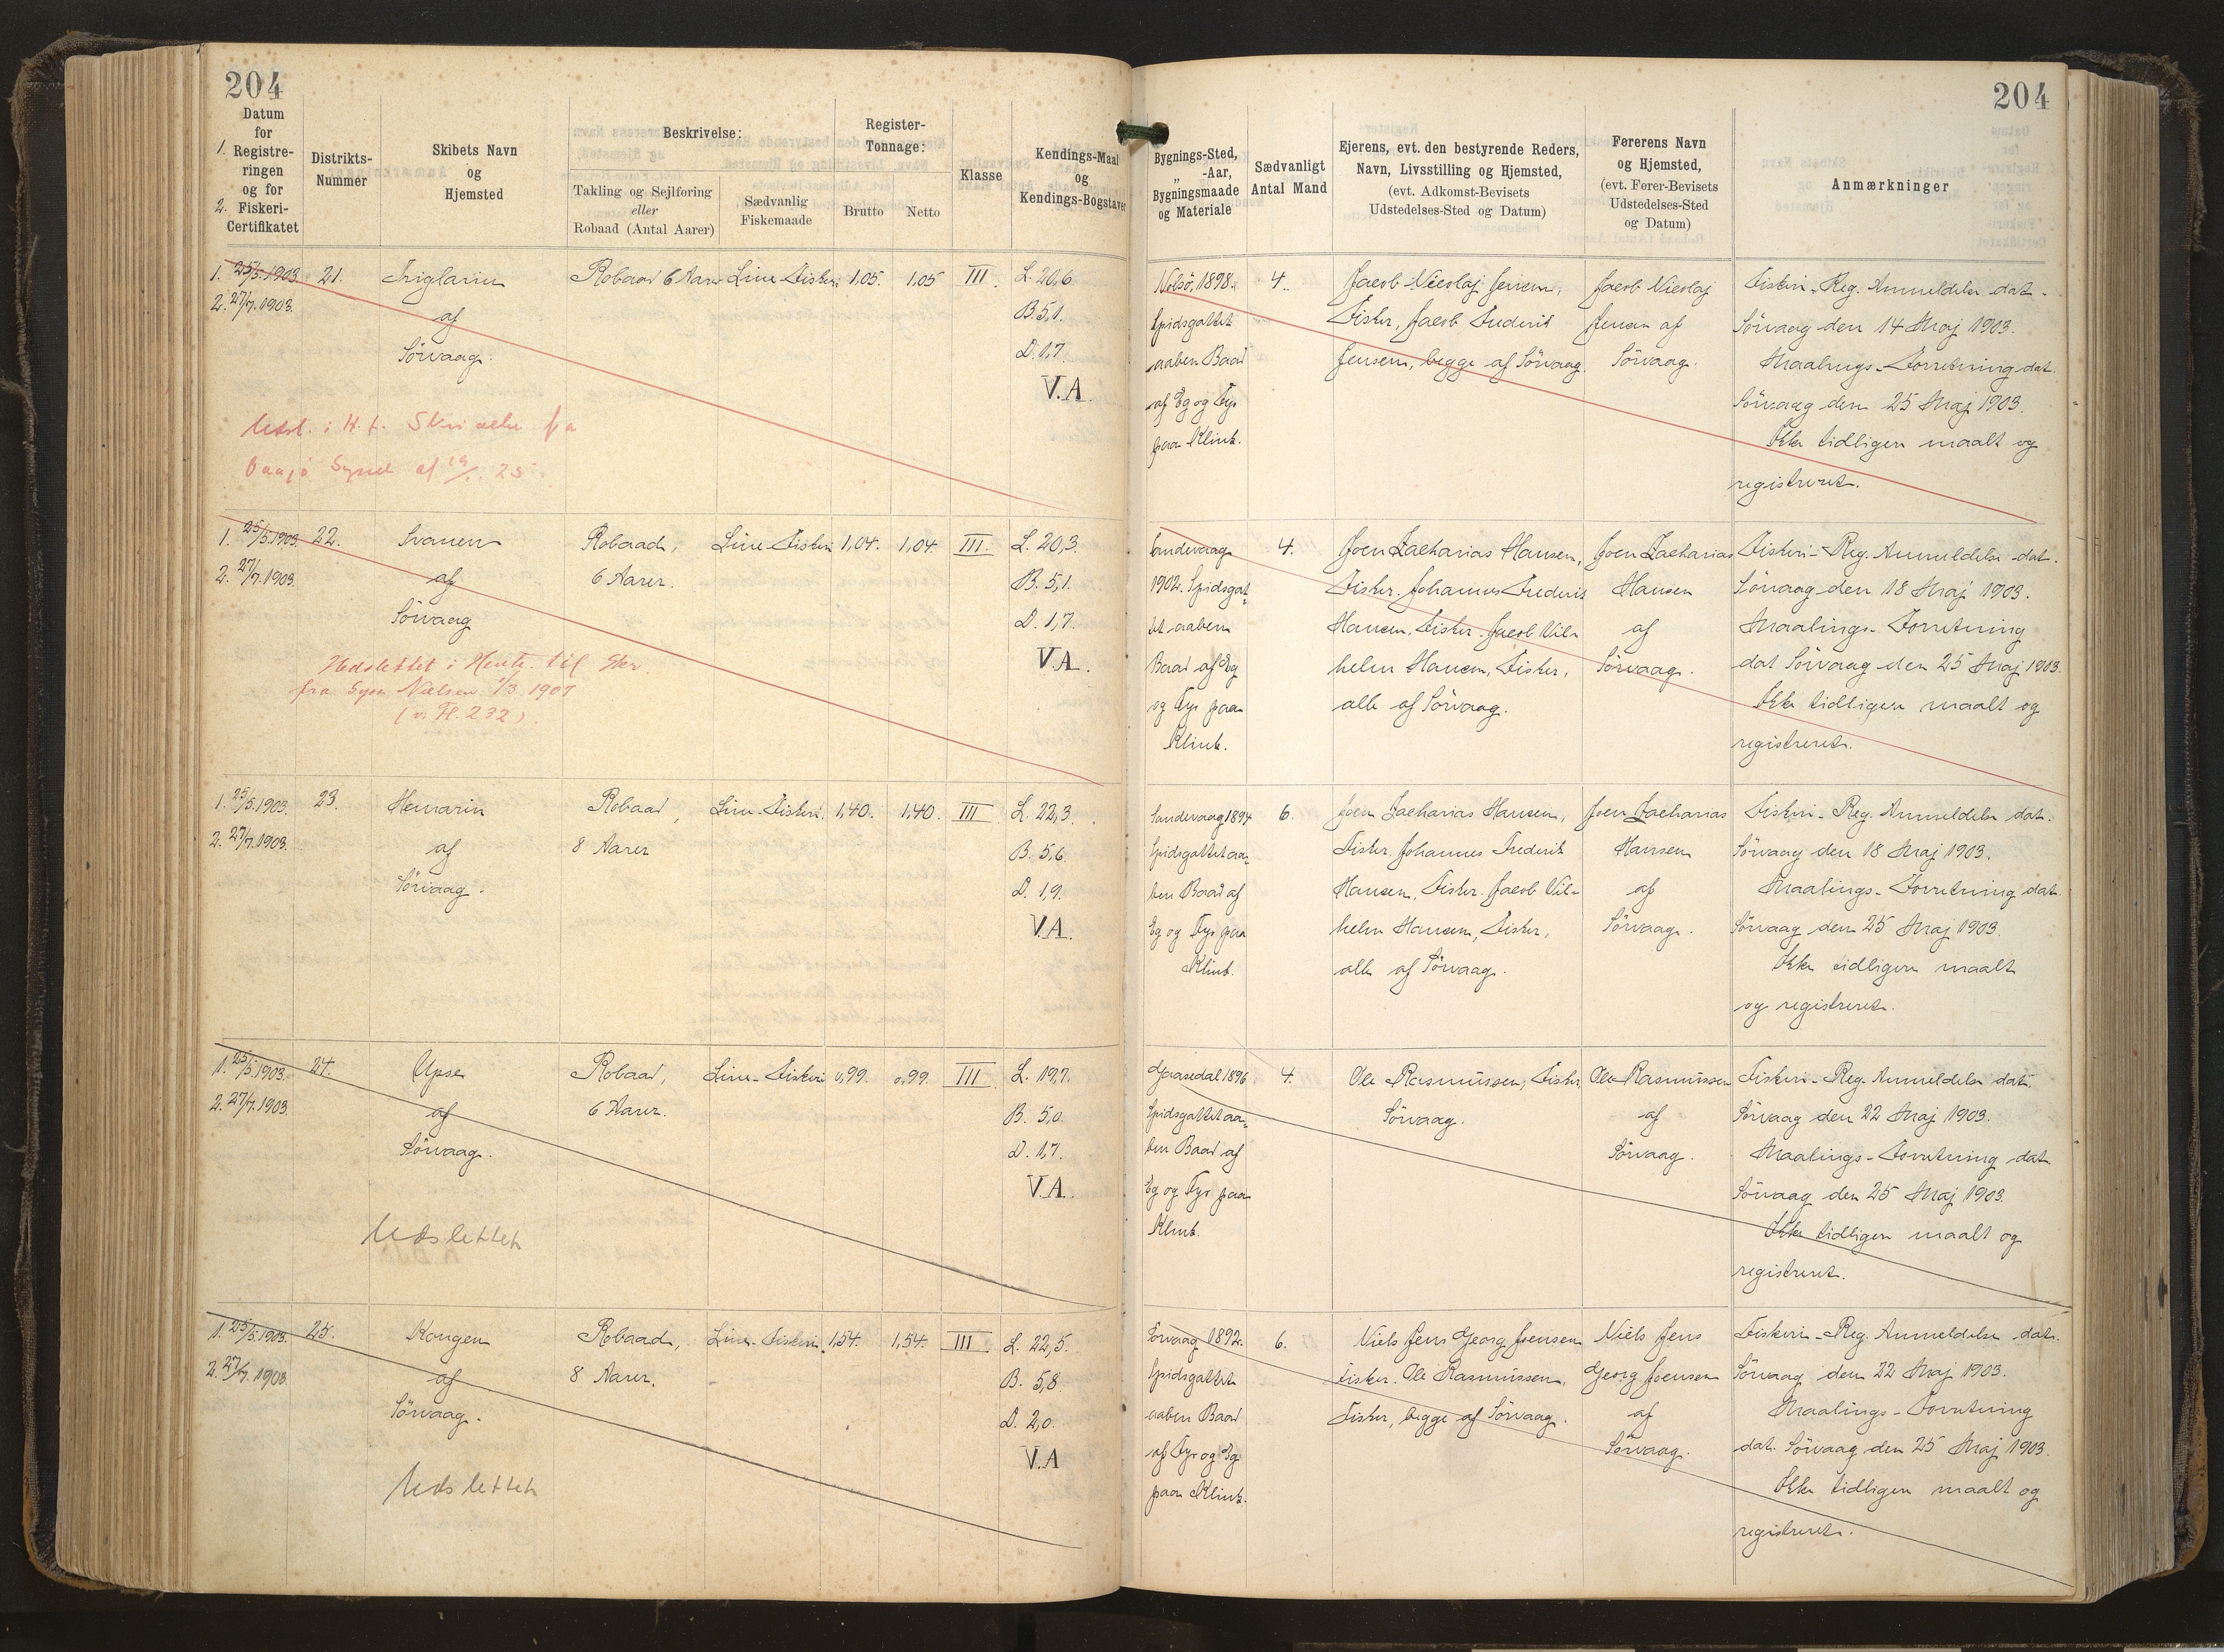 204
204
Datum
for
1. Registre-
ringen
og for
2. Fiskeri-
Certifikatet
Distrikts-
Nummer
Skibets Navn
og
Hjemsted
Beskrivelse:
Takling og Sejlføring
eller
Robaad (Antal Aarer)
Sædvanlig
Fiskemaade
Register-
Tonnage:
Brutto
Netto
Klasse
Kendings-Maal
og
Kendings-Bogstaver
Bygnings-Sted,
„ -Aar,
Bygningsmaade
og Materiale
Sædvanligt
Antal Mand
Ejerens, evt. den bestyrende Reders,
Navn, Livsstilling og Hjemsted,
(evt. Adkomst-Bevisets
Udstedelses-Sted og Datum)
Førerens Navn
og Hjemsted,
(evt. Fører-Bevisets
Udstedelses-Sted
og Datum)
Anmærkninger
1. 25/5.1903.
2. 27/7.1903.
21.
af
Sörvaag.
Robaad 6 Aarer
Line-Fiskeri
1,05.
1,05
III.
L. 20,6
B. 5,1.
D. 1,7.
V.A.
Nolsö, 1898.
Spidsgattet
aaben Baad
af Eg og Fyr
paa Klink.
4.
Jacob Nicolaj Jensen,
Fisker, Jacob Frederik
Jensen, begge af Sörvaag.
Jacob Nicolaj
Jensen af
Sörvaag.
Fiskeri-Reg. Anmeldelse dat.
Sörvaag den 14 Maj 1903.
Maalings-Forretning dat.
Sörvaag den 25 Maj 1903.
Ikke tidligere maalt og
registreret.
Udsl. i H. t. Skrivelse fra
Syssel af
1. 25/5.1903.
2. 27/7.1903.
22.
Svanen
af
Sörvaag
Robaad,
6 Aarer.
Line-Fiskeri
1,04.
1,04.
III.
L. 20,3.
B. 5,1.
D. 1,7.
V.A.
Sandevaag
1902. Spidsgat-
tet aaben
Baad af Eg
og Fyr paa
Klink.
4.
Joen Zacharias Hansen,
Fisker. Johannes Frederik
Hansen, Fisker. Jacob Vil-
helm Hansen, Fisker,
alle af Sörvaag.
Joen Zacharias
Hansen
af
Sörvaag.
Fiskeri-Reg. Anmeldelse dat.
Sörvaag den 18 Maj 1903.
Maalings-Forretning
dat Sörvaag den 25 Maj 1903.
Ikke tidligere maalt og
registreret.
Udslettet i Henh. til Skr.
fra Sysm Nielsen 1/3 1907
(v. Fl. 232).
1. 25/5.1903.
2. 27/7.1903.
23.
Hemarin
af
Sörvaag.
Robaad,
8 Aarer
Line-Fiskeri.
1,40.
1,40.
III.
L. 22,3.
B. 5,6.
D. 1,9.
V.A.
Sandevaag 1894
Spidsgattet aa-
ben Baad af
Eg og Fyr paa
Klink.
6.
Joen Zacharias Hansen,
Fisker. Johannes Frederik
Hansen, Fisker. Jacob Vil-
helm Hansen, Fisker,
alle af Sörvaag.
Joen Zacharias
Hansen
af
Sörvaag.
Fiskeri-Reg. Anmeldelse dat.
Sörvaag den 18 Maj 1903.
Maalings-Forretning dat.
Sörvaag den 25 Maj 1903.
Ikke tidligere maalt
og registreret.
1. 25/5.1903.
2. 27/7.1903.
24.
Upse
af
Sörvaag.
Robaad,
6 Aarer.
Line-Fiskeri
0,99.
0,99.
III
L. 19,7.
B. 5,0.
D. 1,7.
V.A.
Gaasedal 1896
Spidsgattet aa-
ben Baad af
Eg og Fyr paa
Klink.
4.
Ole Rasmussen, Fisker,
Sörvaag.
Ole Rasmussen
af
Sörvaag.
Fiskeri-Reg. Anmeldelse dat.
Sörvaag den 22 Maj 1903.
Maalings-Forretning dat.
Sörvaag den 25 Maj 1903.
Ikke tidligere maalt og
registreret.
Udslettet
1. 25/5.1903.
2. 27/7.1903
25.
Kongen
af
Sörvaag.
Robaad,
8 Aarer.
Line-Fiskeri.
1,54.
1,54.
III
L. 22,5.
B. 5,8.
D. 2,0.
V.A
Sörvaag 1892.
Spidsgattet
aaben Baad
af Fyr og Eg
paa Klink.
6.
Niels Jens Georg Joensen
Fisker. Ole Rasmussen,
Fisker, begge af Sörvaag.
Niels Jens
Georg Joensen
af
Sörvaag.
Fiskeri-Reg. Anmeldelse dat.
Sörvaag den 22 Maj 1903.
Maalings-Forretning
dat. Sörvaag den 25 Maj 1903.
Ikke tidligere maalt og
registreret.
Udslettet